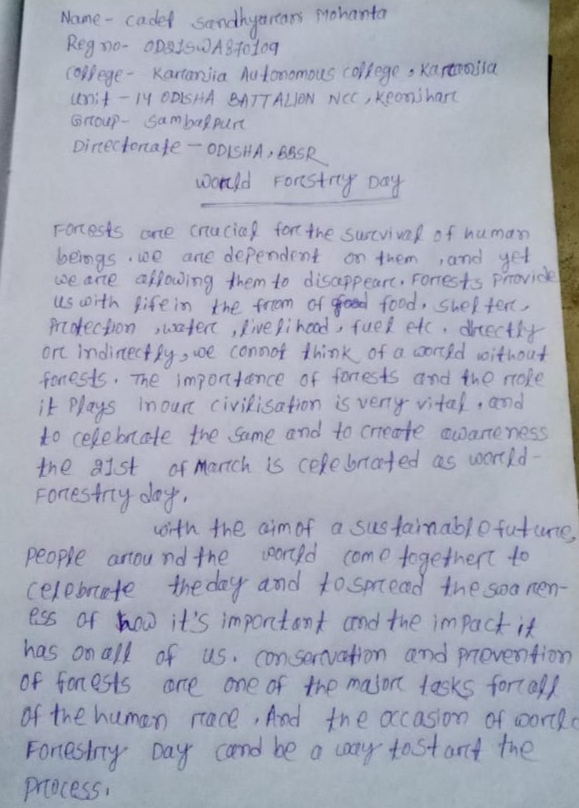 Name - cadet sandhyarani Mohanta
Reg no- OD21SWA870109
college - Karanjia Autonomous college, Karanjia
unit - 14 ODISHA BATTALION NCC, Keonjhar
Group- Sambalpur
Directorate - ODISHA, BBSR
World Forestry Day
Forests are crucial for the survival of human
beings. we are dependent on them, and yet
we are allowing them to disappear. Forests Provide
us with life in the from of food, shelter,
Protection, water, livelihood, fuel etc. directly
or indirectly, we connot think of a world without
forests. The importance of forests and the role
it plays in our civilisation is very vital, and
to celebrate the same and to create awareness
the 21st of March is celebrated as world-
Forestry day.
with the aim of a sustainable future,
people around the world come together to
celebrate the day and to spread the soaren-
ess of how it's important and the impact it
has on all of us. conservation and prevention
of forests are one of the major tasks for all
of the human race. And the occasion of world
Forestry Day cand be a way to start the
process.